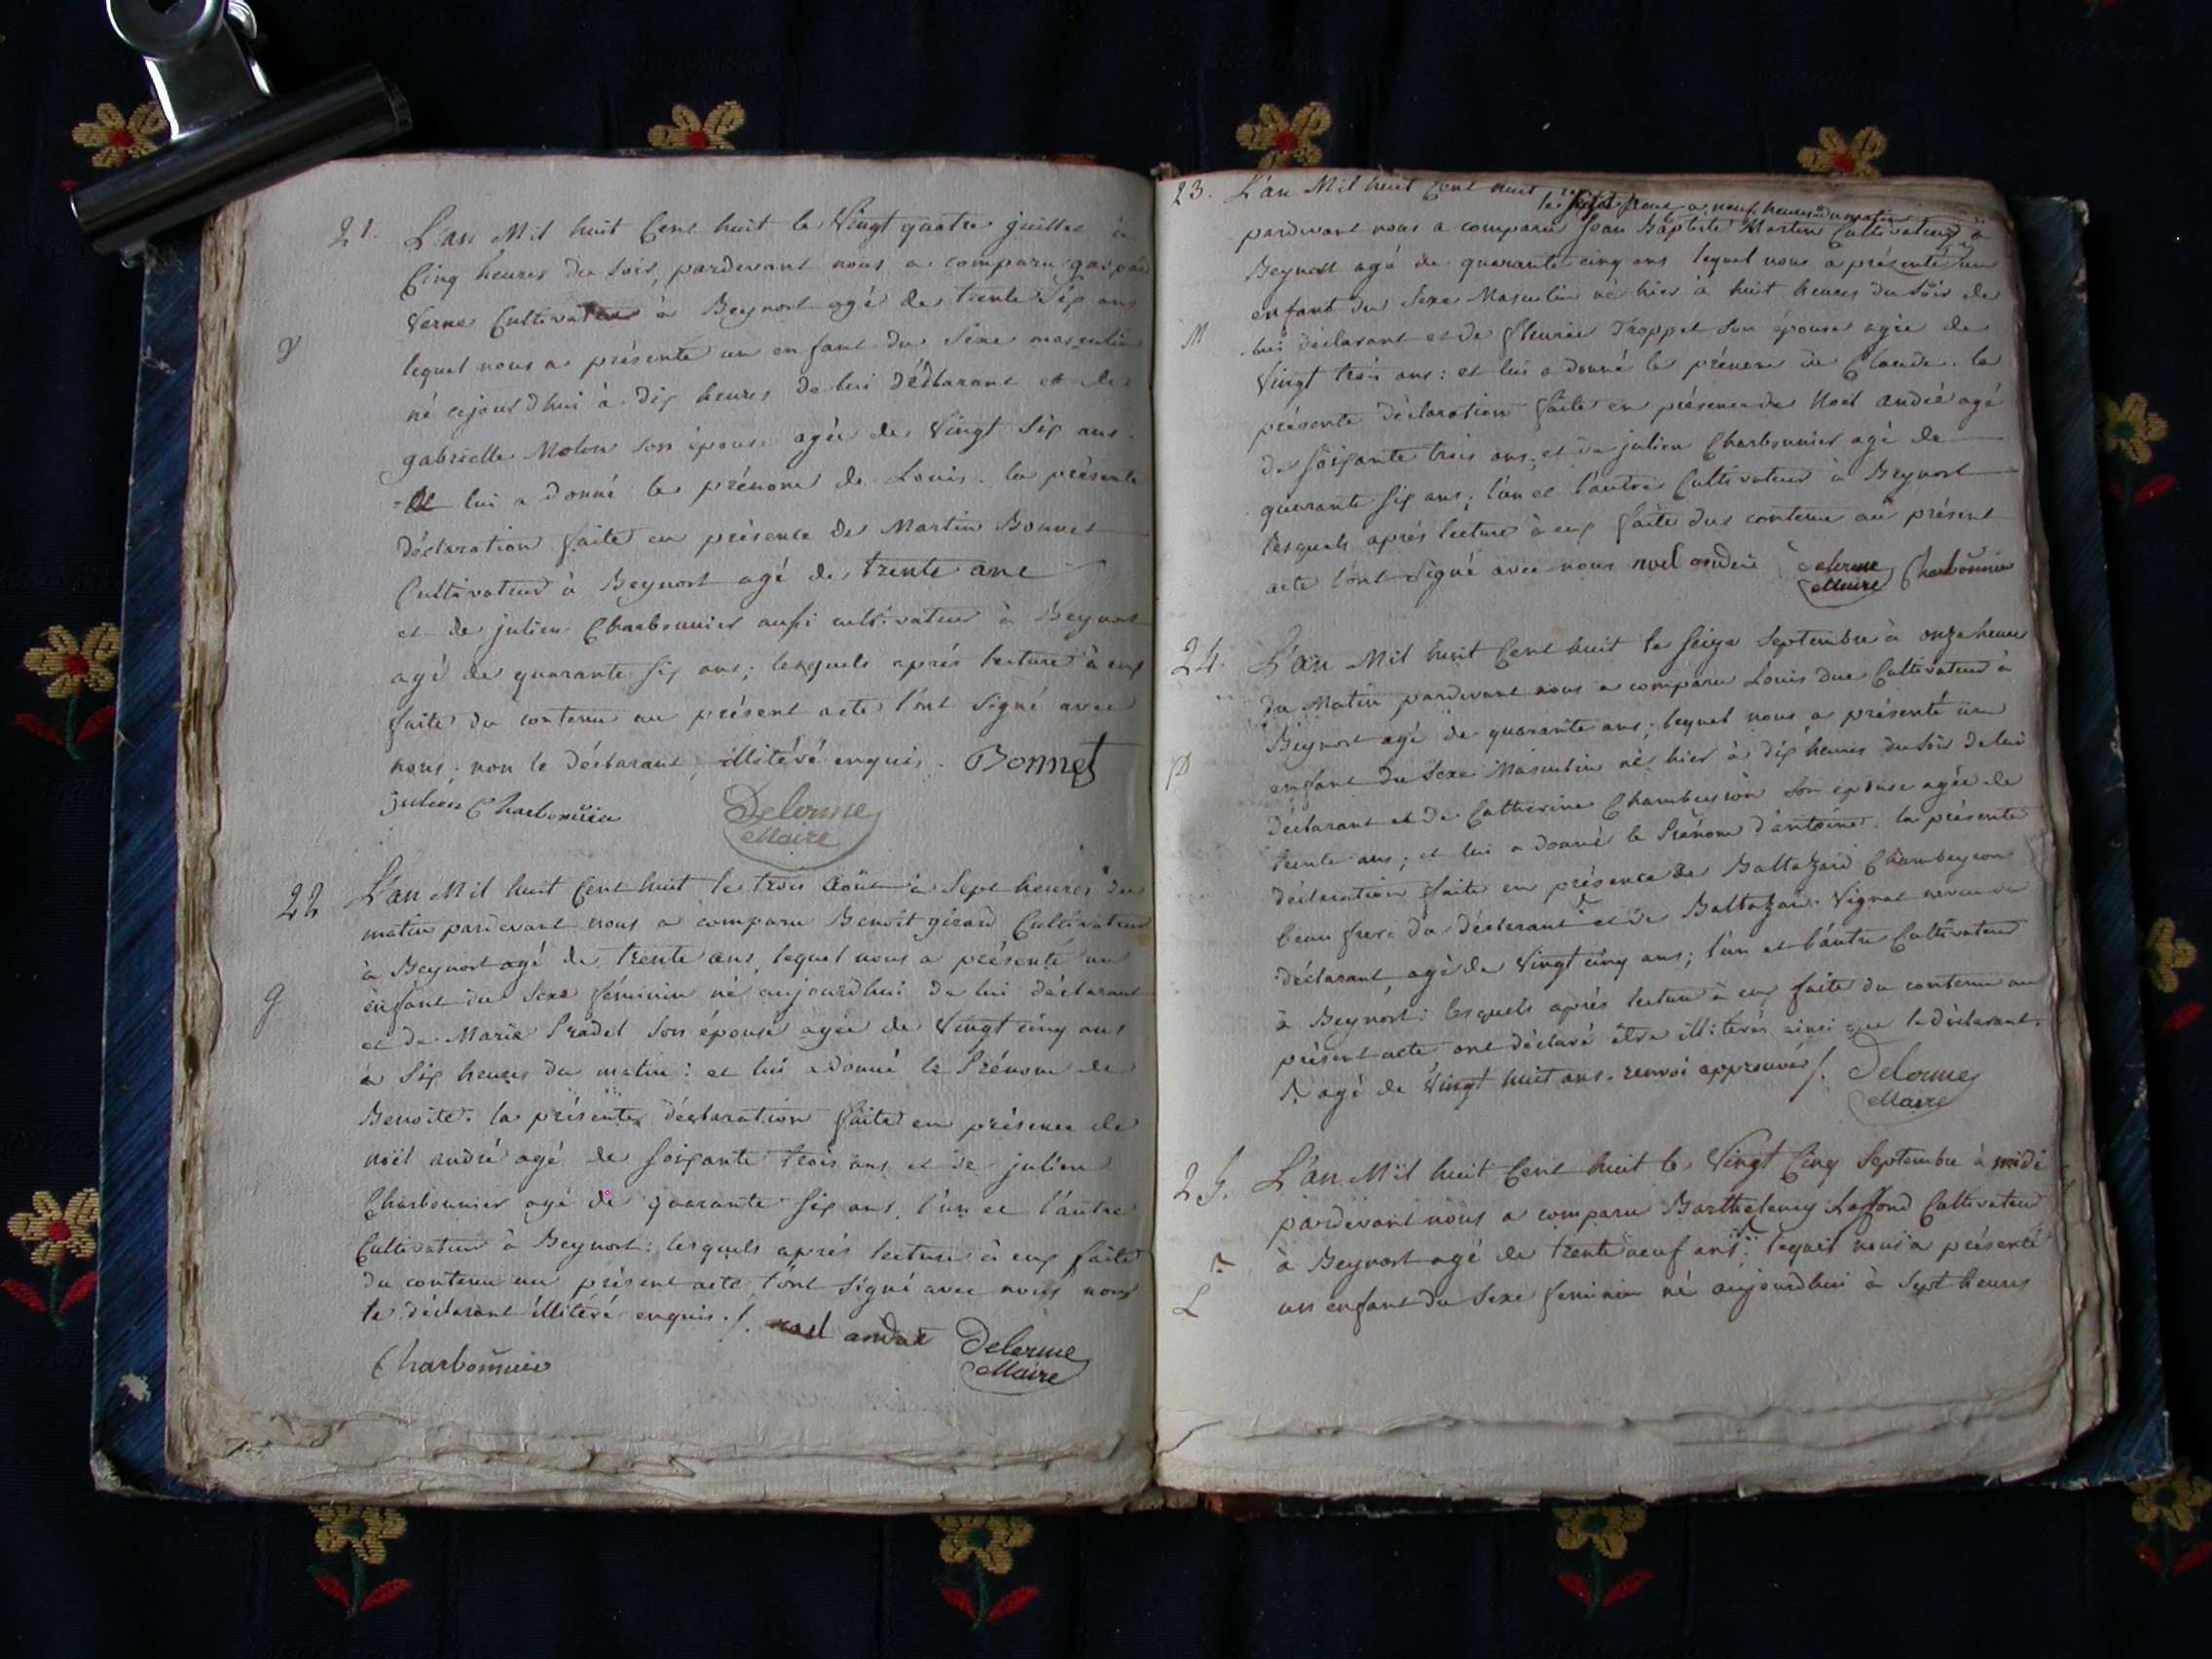 21. L'an Mil huit Cent huit le Vingt quatre juillet à
Cinq heures du Soir, pardevant nous a comparu gaspard
Verne Cultivateur à Beynost agé de trente Six ans
V
lequel nous a présenté un enfant du Sexe masculin
né cejourd'hui à dix heures de lui déclarant et de
gabrielle Molon son épouse agée de Vingt Six ans.
et lui a donné le prénom de Louis. la présente
déclaration faite en présence de Martin Bonnet
Cultivateur à Beynost agé de trente ans
et de julien Charbonnier aussi cultivateur à Beynost
agé de quarante Six ans; lesquels après lecture à eux
faite du contenu au présent acte l'ont Signé avec
nous, non le déclarant, illitéré enquis. Bonnet
julien Charbonnier Delorme
Maire
22 L'an Mil huit Cent huit le trois Août à Sept heures du
matin pardevant nous a comparu Benoit girard Cultivateur
à Beynost agé de trente ans, lequel nous a présenté un
g
enfant du Sexe féminin né aujourdhui de lui déclarant
et de Marie Pradel Son épouse agée de Vingt cinq ans
à Six heures du matin: et lui a donné le Prénom de
Benoite. la présente déclaration faite en présence de
noël andré agé de soixante trois ans et de julien
Charbonnier agé de quarante Six ans, l'un et l'autre
Cultivateur à Beynost; lesquels après lecture à eux faite
du contenu au présent acte l'ont Signé avec nous non
le déclarant illitéré enquis./. noel andré Delorme
Maire
Charbonnier
23. L'an Mil huit Cent huit
le août a neuf heures du matin
pardevant nous a comparu Jean Baptiste Martin Cultivateur à
Beynost agé de quarante cinq ans lequel nous a présenté un
enfant du Sexe Masculin né hier à huit heures du Soir de
M
lui déclarant et de fleurie Troppel Son épouse agée de
Vingt trois ans: et lui a donné le prénom de Claude. la
présente déclaration faite en présence de Noël andré agé
de soixante trois ans, et de julien Charbonnier agé de
quarante Six ans; l'un et l'autre Cultivateur à Beynost
lesquels après lecture à eux faite du contenu au présent
acte l'ont Signé avec nous noel andré Delorme Charbonnier
Maire
24. L'an Mil huit Cent huit le Seize Septembre à onze heures
du Matin pardevant nous a comparu Louis duc Cultivateur à
Beynost agé de quarante ans, lequel nous a présenté un
D
enfant du Sexe Masculin né hier à dix heures du Soir de lui
déclarant et de Catherine Chambeyron Son épouse agée de
trente ans; et lui a donné le Prénom d'antoine. la présente
déclaration faite en présence de Baltazard Chambeyron
beau frere du déclarant et de Baltazard Vignat neveu du
déclarant, agé de Vingt cinq ans; l'un et l'autre Cultivateur
à Beynost: lesquels après lecture à eux faite du contenu au
présent acte ont déclaré être illitérés ainsi que le déclarant.
agé de Vingt huit ans. renvoi approuvé /. Delorme
Maire
25. L'an Mil huit Cent huit le Vingt Cinq Septembre à midi
pardevant nous a comparu Barthelemy Laffond Cultivateur
à Beynost agé de trente neuf ans; lequel nous a présenté
L
un enfant du Sexe feminin né aujourdhui à Sept heures